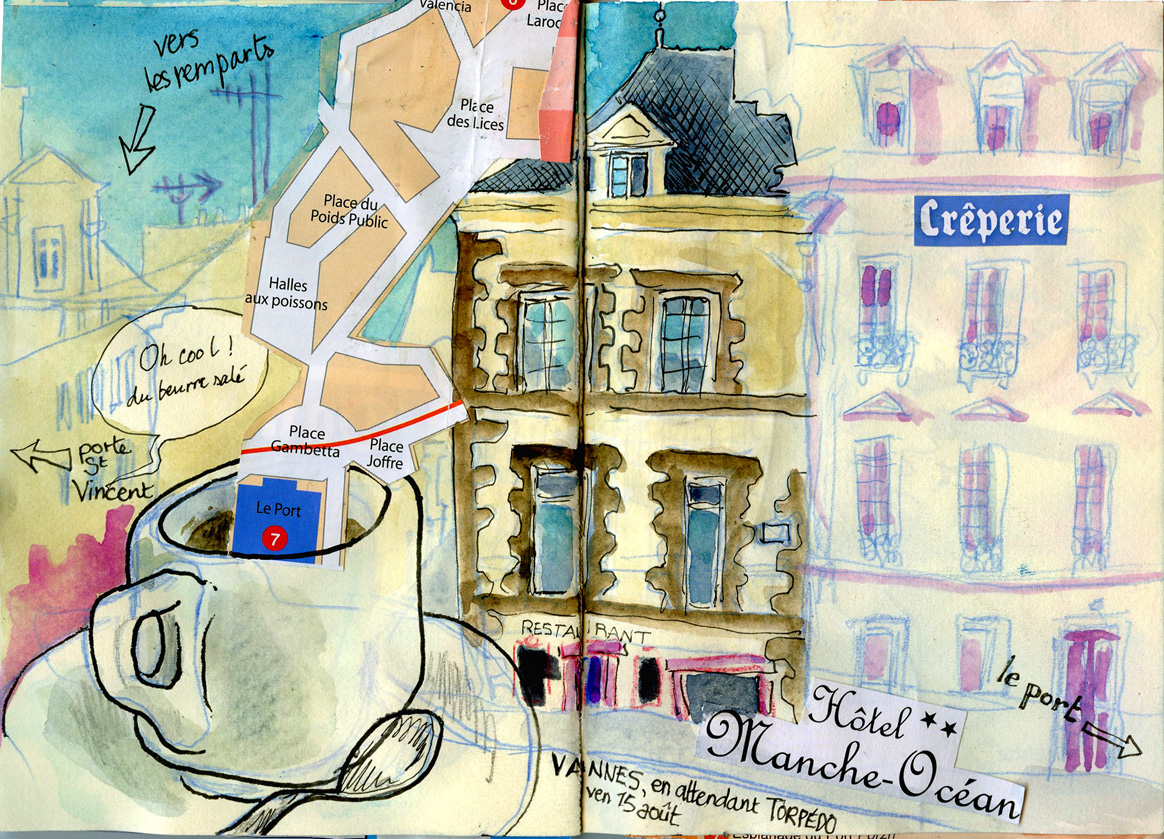 vers
les remparts
Valencia
6
Place
Laroc
Place
des Lices
Place du
Poids Public
Halles
aux poissons
Crêperie
Oh cool !
du beurre salé
porte
St
Vincent
Place
Gambetta
Place
Joffre
Le Port
7
RESTAURANT
le port
Hôtel ★★
Manche-Océan
VANNES, en attendant TORPÉDO
ven 15 août